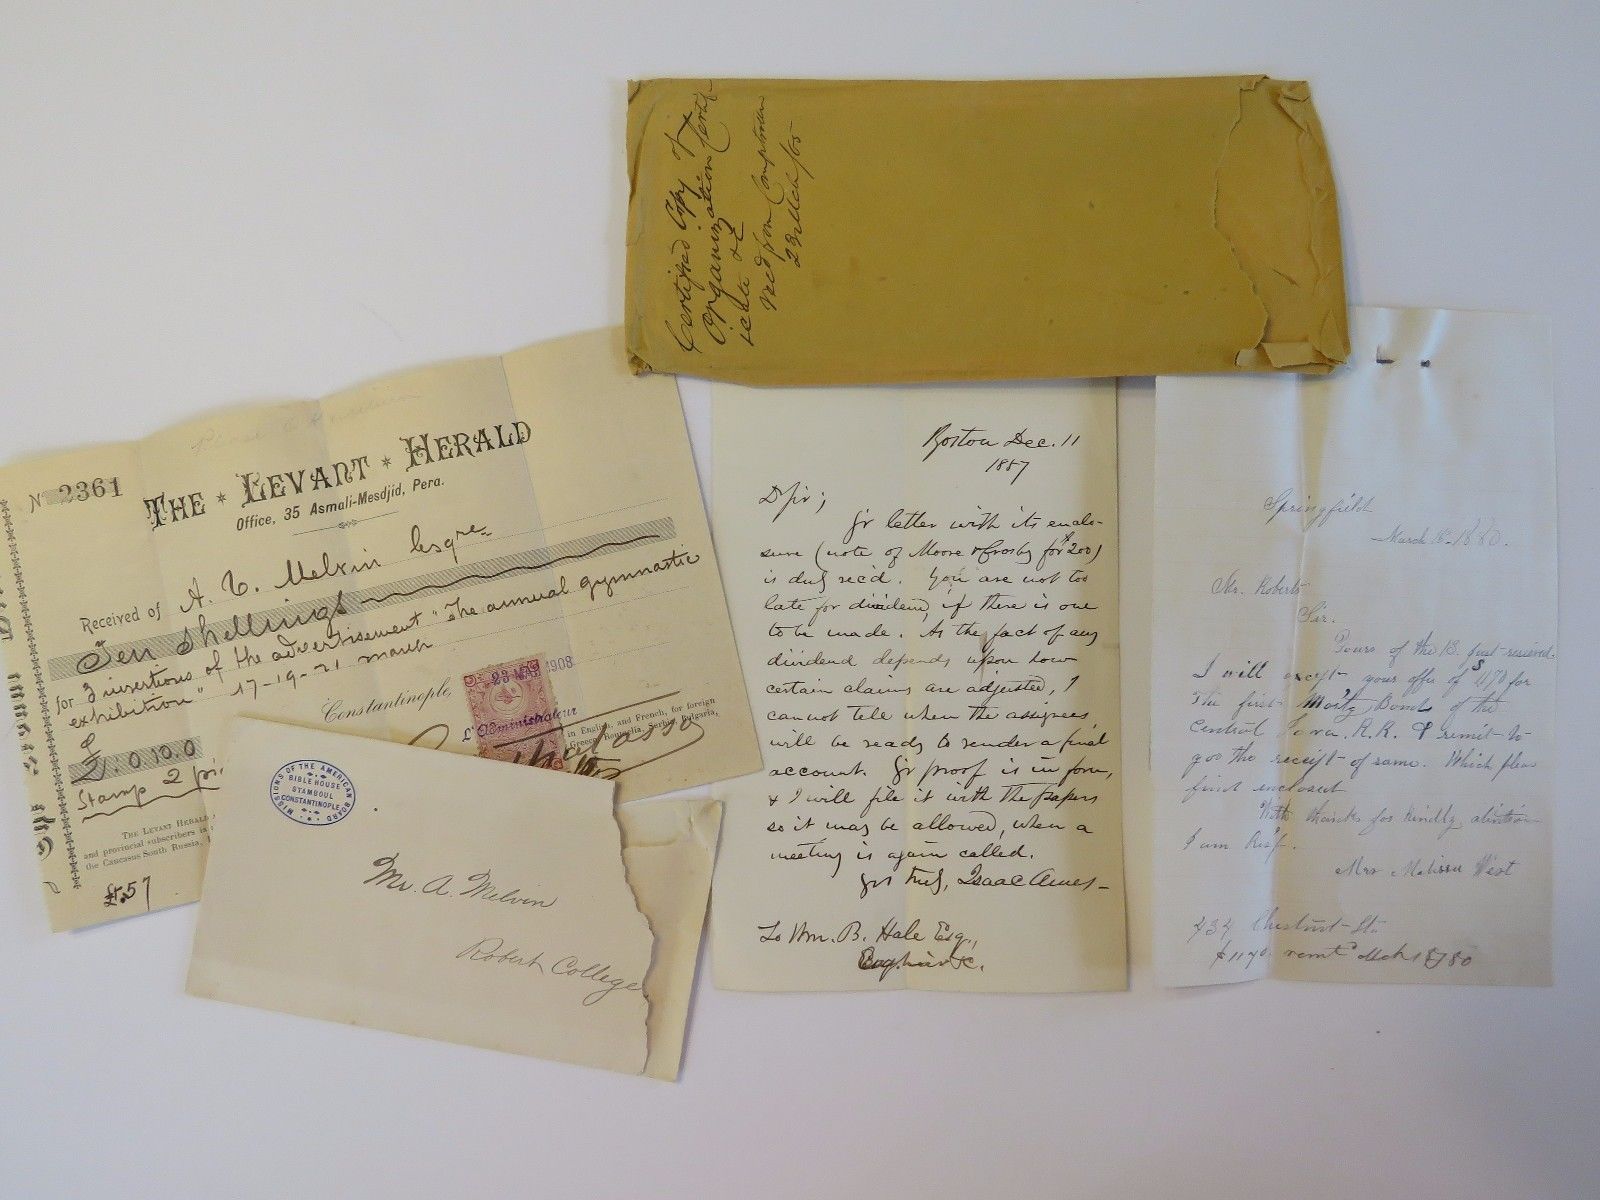 Certified Copy of
Organization Certif
icate &c
Recd from Comptroller
23 March /65
No 2361
THE * LEVANT * HERALD
Office, 35 Asmali-Mesdjid, Pera.
Received of A. C. Melvin Esqre
Ten Shellings
for 3 insertions of the advertisement "The annual gymnastic
exhibition" 17-19-21 march
Constantinople,
23 MAR 1908
L'Administrateur
£ : 0.10.0
Stamp 2
in English, and French, for foreign
Greece, Roumelia, Servia, Bulgaria,
THE LEVANT HERALD
and provincial subscribers in
the Caucasus South Russia,
57
MISSIONS OF THE AMERICAN BOARD
BIBLE HOUSE
STAMBOUL
CONSTANTINOPLE
Mr. A. Melvin
Robert College
Boston Dec. 11
1887
D Sir;
Yr letter with its enclo-
sure (note of Moore & Crosby for $200)
is duly rec'd. You are not too
late for dividend, if there is one
to be made. As the fact of any
dividend depends upon how
certain claims are adjusted, I
cannot tell when the assignees
will be ready to render a final
account. Yr proof is in form,
& I will file it with the papers
so it may be allowed, when a
meeting is again called.
Yrs truly, Isaac Ames-
To Wm. B. Hale Esq.,
Springfield
March 18-1880.
Mr. Roberts
Sir.
Yours of the 13. just-received.
I will except your offer of $1170 for
The first Mortg. Bond of the
Central Iowa. R.R. & remit-to
you the receipt-of same. Which please
find enclosed
With thanks for kindly attention
I am Resf.
Mrs Melissa West
434 Chestnut-St.
$1170. remtd Mch 18/80